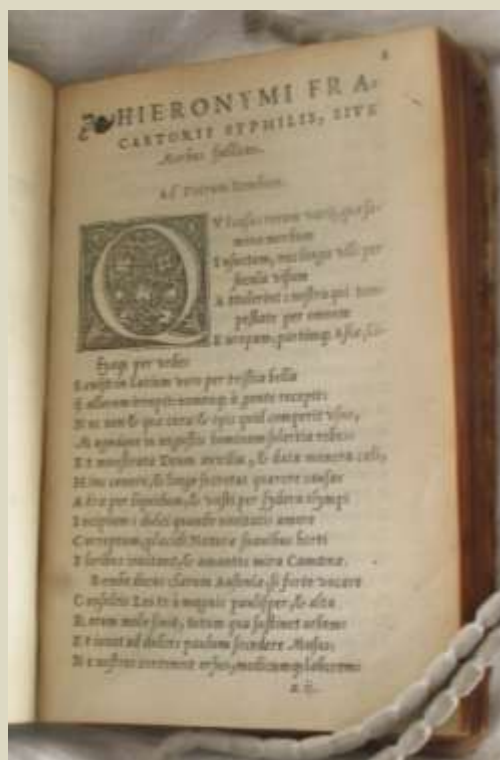 HIERONYMI FRA-
CASTORII SYPHILIS, SIVE
Morbus Gallicus.
Ad Petrum Bembum.
QVI casus rerum varij, quæ se-
mina morbum
Insuetum, nec longa ulli per
sæcula visum
Attulerint: nostra qui tem-
pestate per omnem
Europam, partimq; Asiæ, Li-
byæq; per urbes
Sæuijt: in Latium vero per tristia bella
Gallorum irrupit: nomenq; à gente recepit:
Nec non & quæ cura: & opis quid comperit vsus,
Magnaque in angustis hominum solertia rebus:
Et monstrata Deum auxilia, & data munera cæli,
Hinc canere, & longe secretas quærere causas
Aera per liquidum, & vasti per sydera olympi
Incipiam: dulci quando nouitatis amore
Correptum, placidi Naturæ suauibus horti
Floribus inuitant, & amantes mira Camœnæ.
Bembe decus clarum Ausoniæ, si forte vacare
Consultis Leo te à magnis paulisper, & alta
Rerum mole sinit, totum qua sustinet orbem:
Et iuuat ad dulces paulum secedere Musas:
Ne nostros contemne orsus, medicumq; laborem:
a ij.